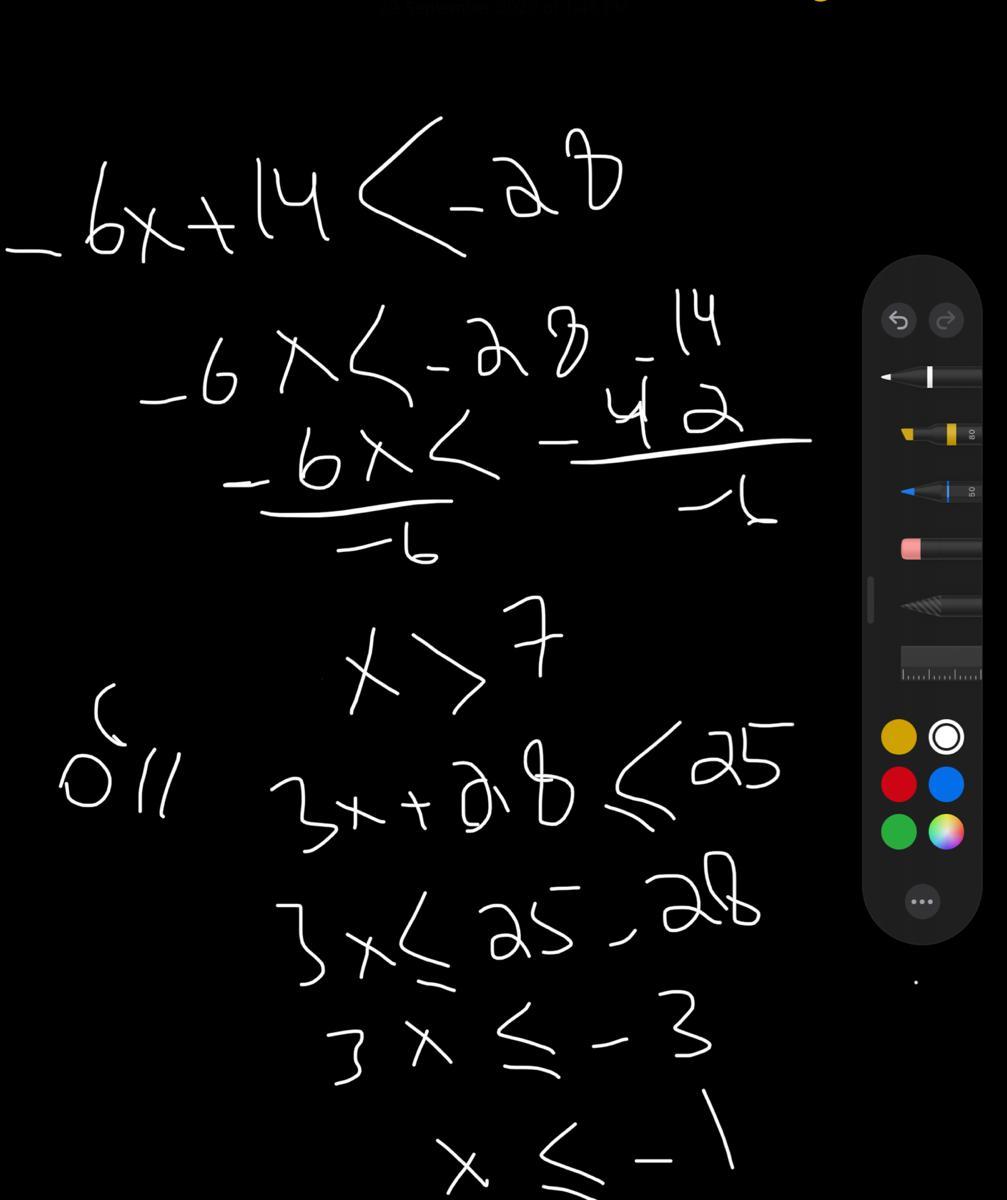 -6x+14 < -28
-6x < -28 - 14
-6x < -42
-6 -6
x > 7
3x + 28 ≤ 25
3x ≤ 25 - 28
3x ≤ -3
x ≤ -1
80
50